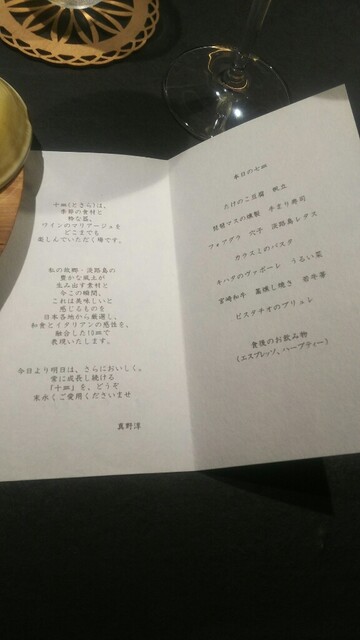 十皿(とさら)は、
季節の食材と
物な器、
ワインのマリアージュを
どこまでも
楽しんでいただく場です。
私の故郷・淡路島の
豊かな風土が
生み出す素材と
今この瞬間、
これは美味しいと
感じるものを
日本各地から厳選し、
和食とイタリアンの感性を
融合した10皿で
表現いたします。
今日より明日は、さらにおいしく。
常に成長し続ける
「十皿」を、どうぞ
末永くご愛用くださいませ
真野淳
本日の十皿
たけのこ豆腐 帆立
琵琶マスの燻製 手まり寿司
フォアグラ 穴子 淡路島レタス
カラスミのパスタ
キハタのヴァポーレ うるい菜
宮崎和牛 藁燻し焼き 若牛蒡
ピスタチオのブリュレ
食後のお飲み物
(エスプレッソ、ハーブティー)